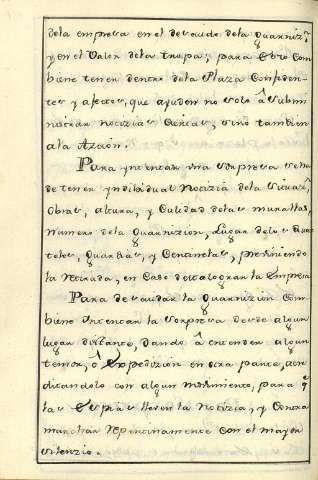 dela empresa en el descuido dela Guarnizn
y en el Valor dela tropa; para esto Com
biene tener dentro dela Plaza Confiden
tes y afectos, que ayuden no solo â Submi
nistrar notizias Ciertas, sino tambien
ala Azaion.
Para yntentar una Sorpresa se ha
de tener yndibidual Notizia dela Situazn
Obras, altura, y Calidad delas murallas,
Numero dela Guarnizion, Lugar delos Qua
teles, Guardias, y Centinelas, previniendo
la Retirada, en Caso de malograr la Empresa
Para descuidar la Guarnizion Com
biene yntentar la Sorpresa desde algun
lugar distante, dando â entender algun
temor, ô Expedizion en otra parte, acre
ditandolo con algun movimiento, para q
las Espias lleven la Notizia, y Contra
marchar Repentinamente con el mayor
silenzio.